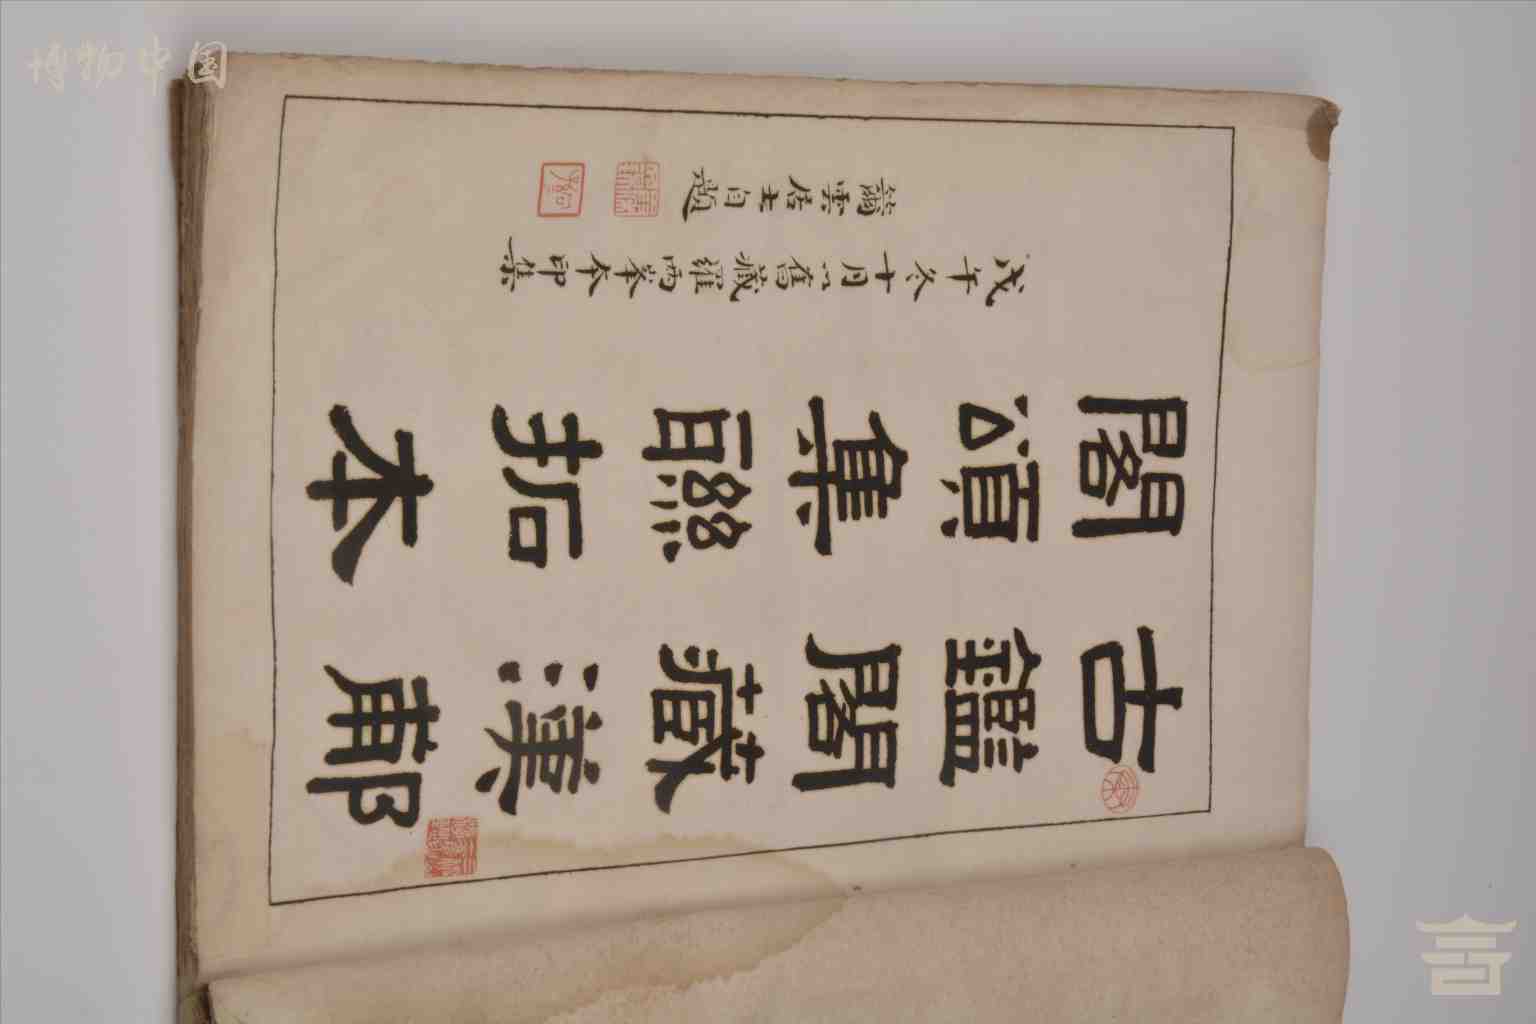 博物中国
古鑑閣藏漢郙
閣頌集聯拓本
戊午冬十月以舊藏羅兩峯本印集
籋雲居士自題